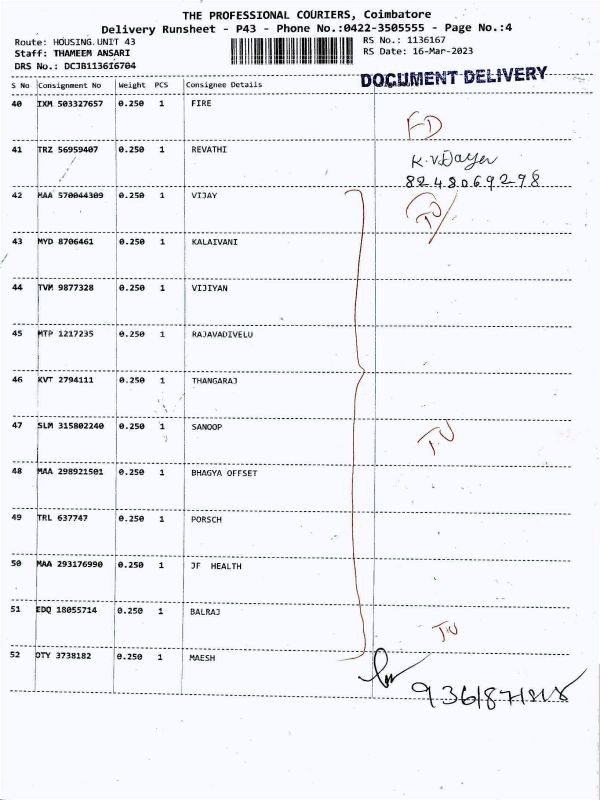 THE PROFESSIONAL COURIERS, Coimbatore
Delivery Runsheet - P43 - Phone No.:0422-3505555 - Page No.:4
Route: HOUSING UNIT 43
RS No.: 1136167
Staff: THAMEEM ANSARI
RS Date: 16-Mar-2023
DRS No.: DCJB113616704
DOCUMENT DELIVERY
S No Consignment No Weight PCS Consignee Details
40 IXM 503327657 0.250 1 FIRE
FD
41 TRZ 56959407 0.250 1 REVATHI
8248069298
42 MAA 570044309 0.250 1 VIJAY
43 MYD 8706461 0.250 1 KALAIVANI
44 TVM 9877328 0.250 1 VIJIYAN
45 MTP 1217235 0.250 1 RAJAVADIVELU
46 KVT 2794111 0.250 1 THANGARAJ
47 SLM 315802240 0.250 1 SANOOP
48 MAA 298921501 0.250 1 BHAGYA OFFSET
49 TRL 637747 0.250 1 PORSCH
50 MAA 293176990 0.250 1 JF HEALTH
51 EDQ 18055714 0.250 1 BALRAJ
52 OTY 3738182 0.250 1 MAESH